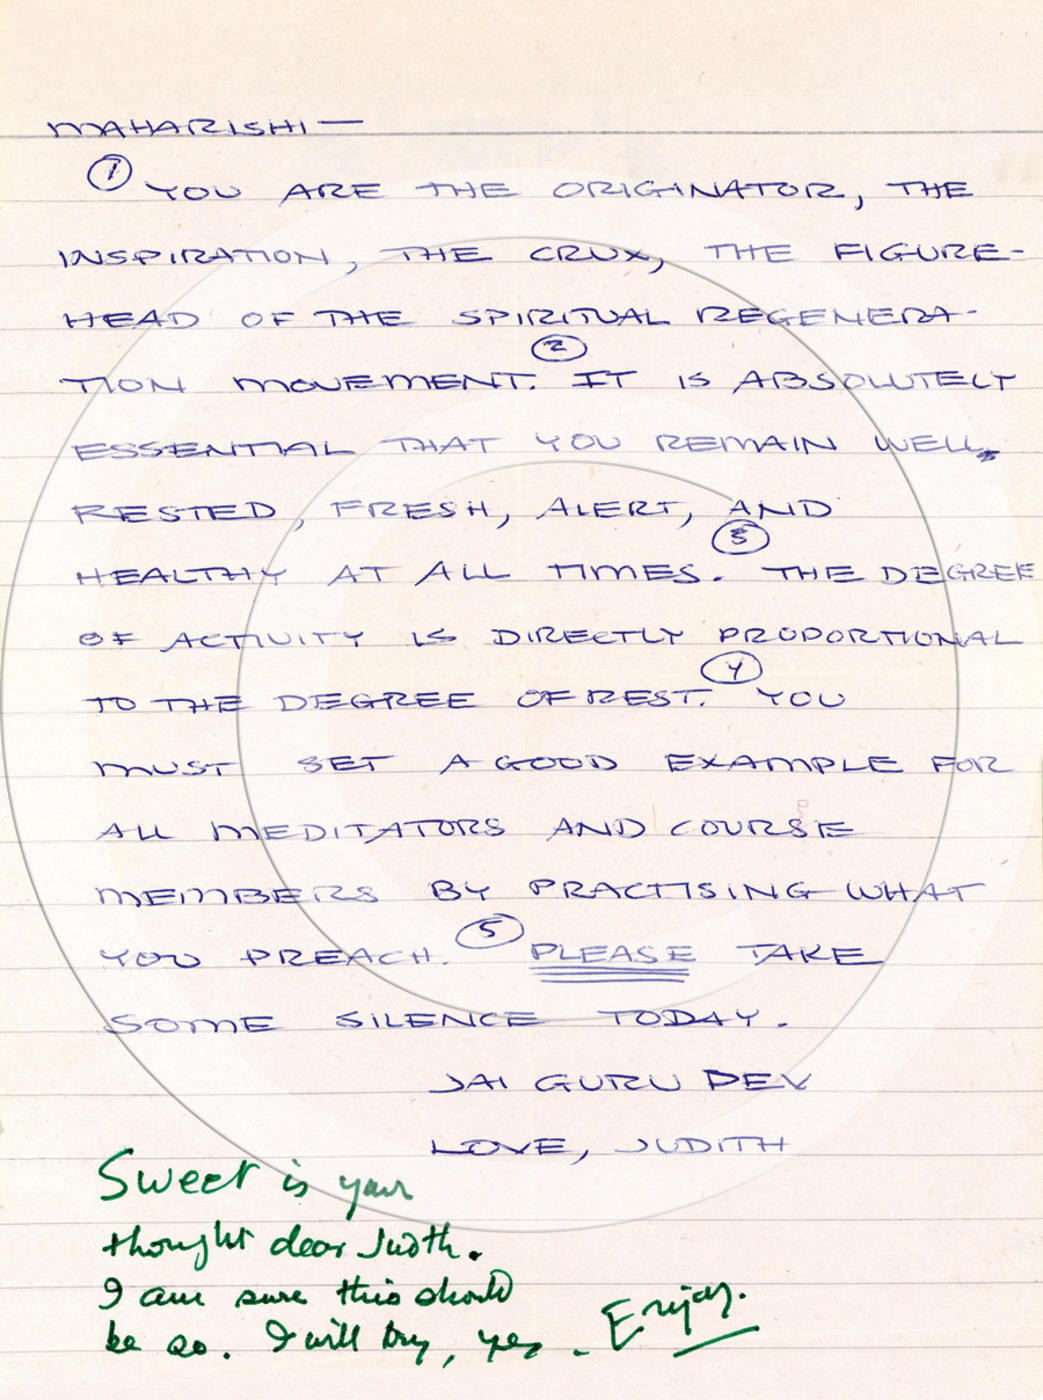 MAHARISHI —
① YOU ARE THE ORIGINATOR, THE
INSPIRATION, THE CRUX, THE FIGURE-
HEAD OF THE SPIRITUAL REGENERA-
TION MOVEMENT. ② IT IS ABSOLUTELY
ESSENTIAL THAT YOU REMAIN WELL,
RESTED, FRESH, ALERT, AND
HEALTHY AT ALL TIMES. ③ THE DEGREE
OF ACTIVITY IS DIRECTLY PROPORTIONAL
TO THE DEGREE OF REST. ④ YOU
MUST SET A GOOD EXAMPLE FOR
ALL MEDITATORS AND COURSE
MEMBERS BY PRACTISING WHAT
YOU PREACH. ⑤ PLEASE TAKE
SOME SILENCE TODAY.
JAI GURU DEV
LOVE, JUDITH
Sweet is your
thought dear Judith.
I am sure this should
be so. I will try, yes - Enjoy.